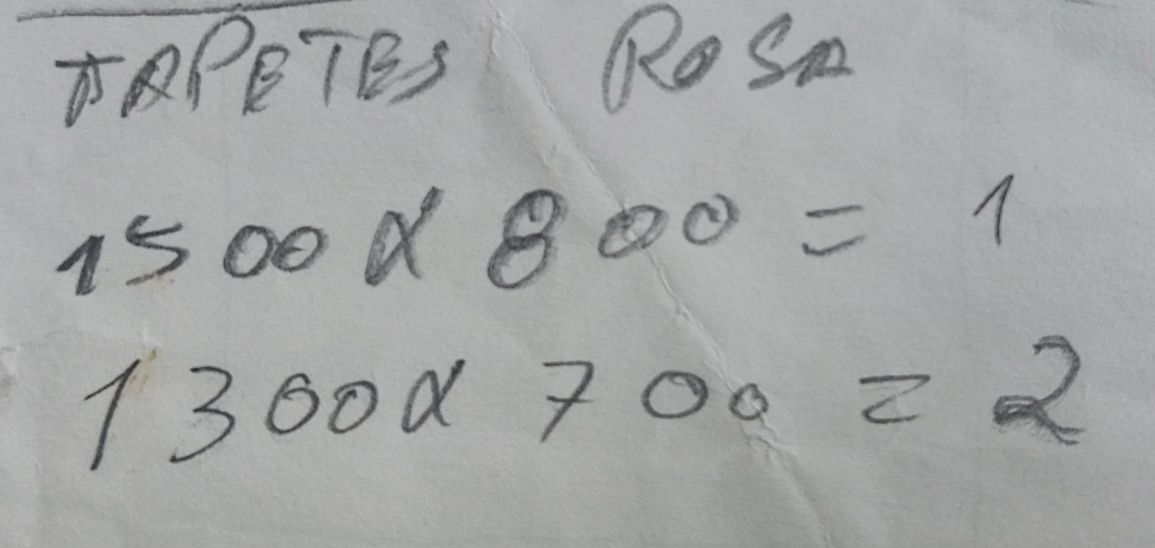 TAPETES ROSA
1500 x 800 = 1
1300 x 700 = 2